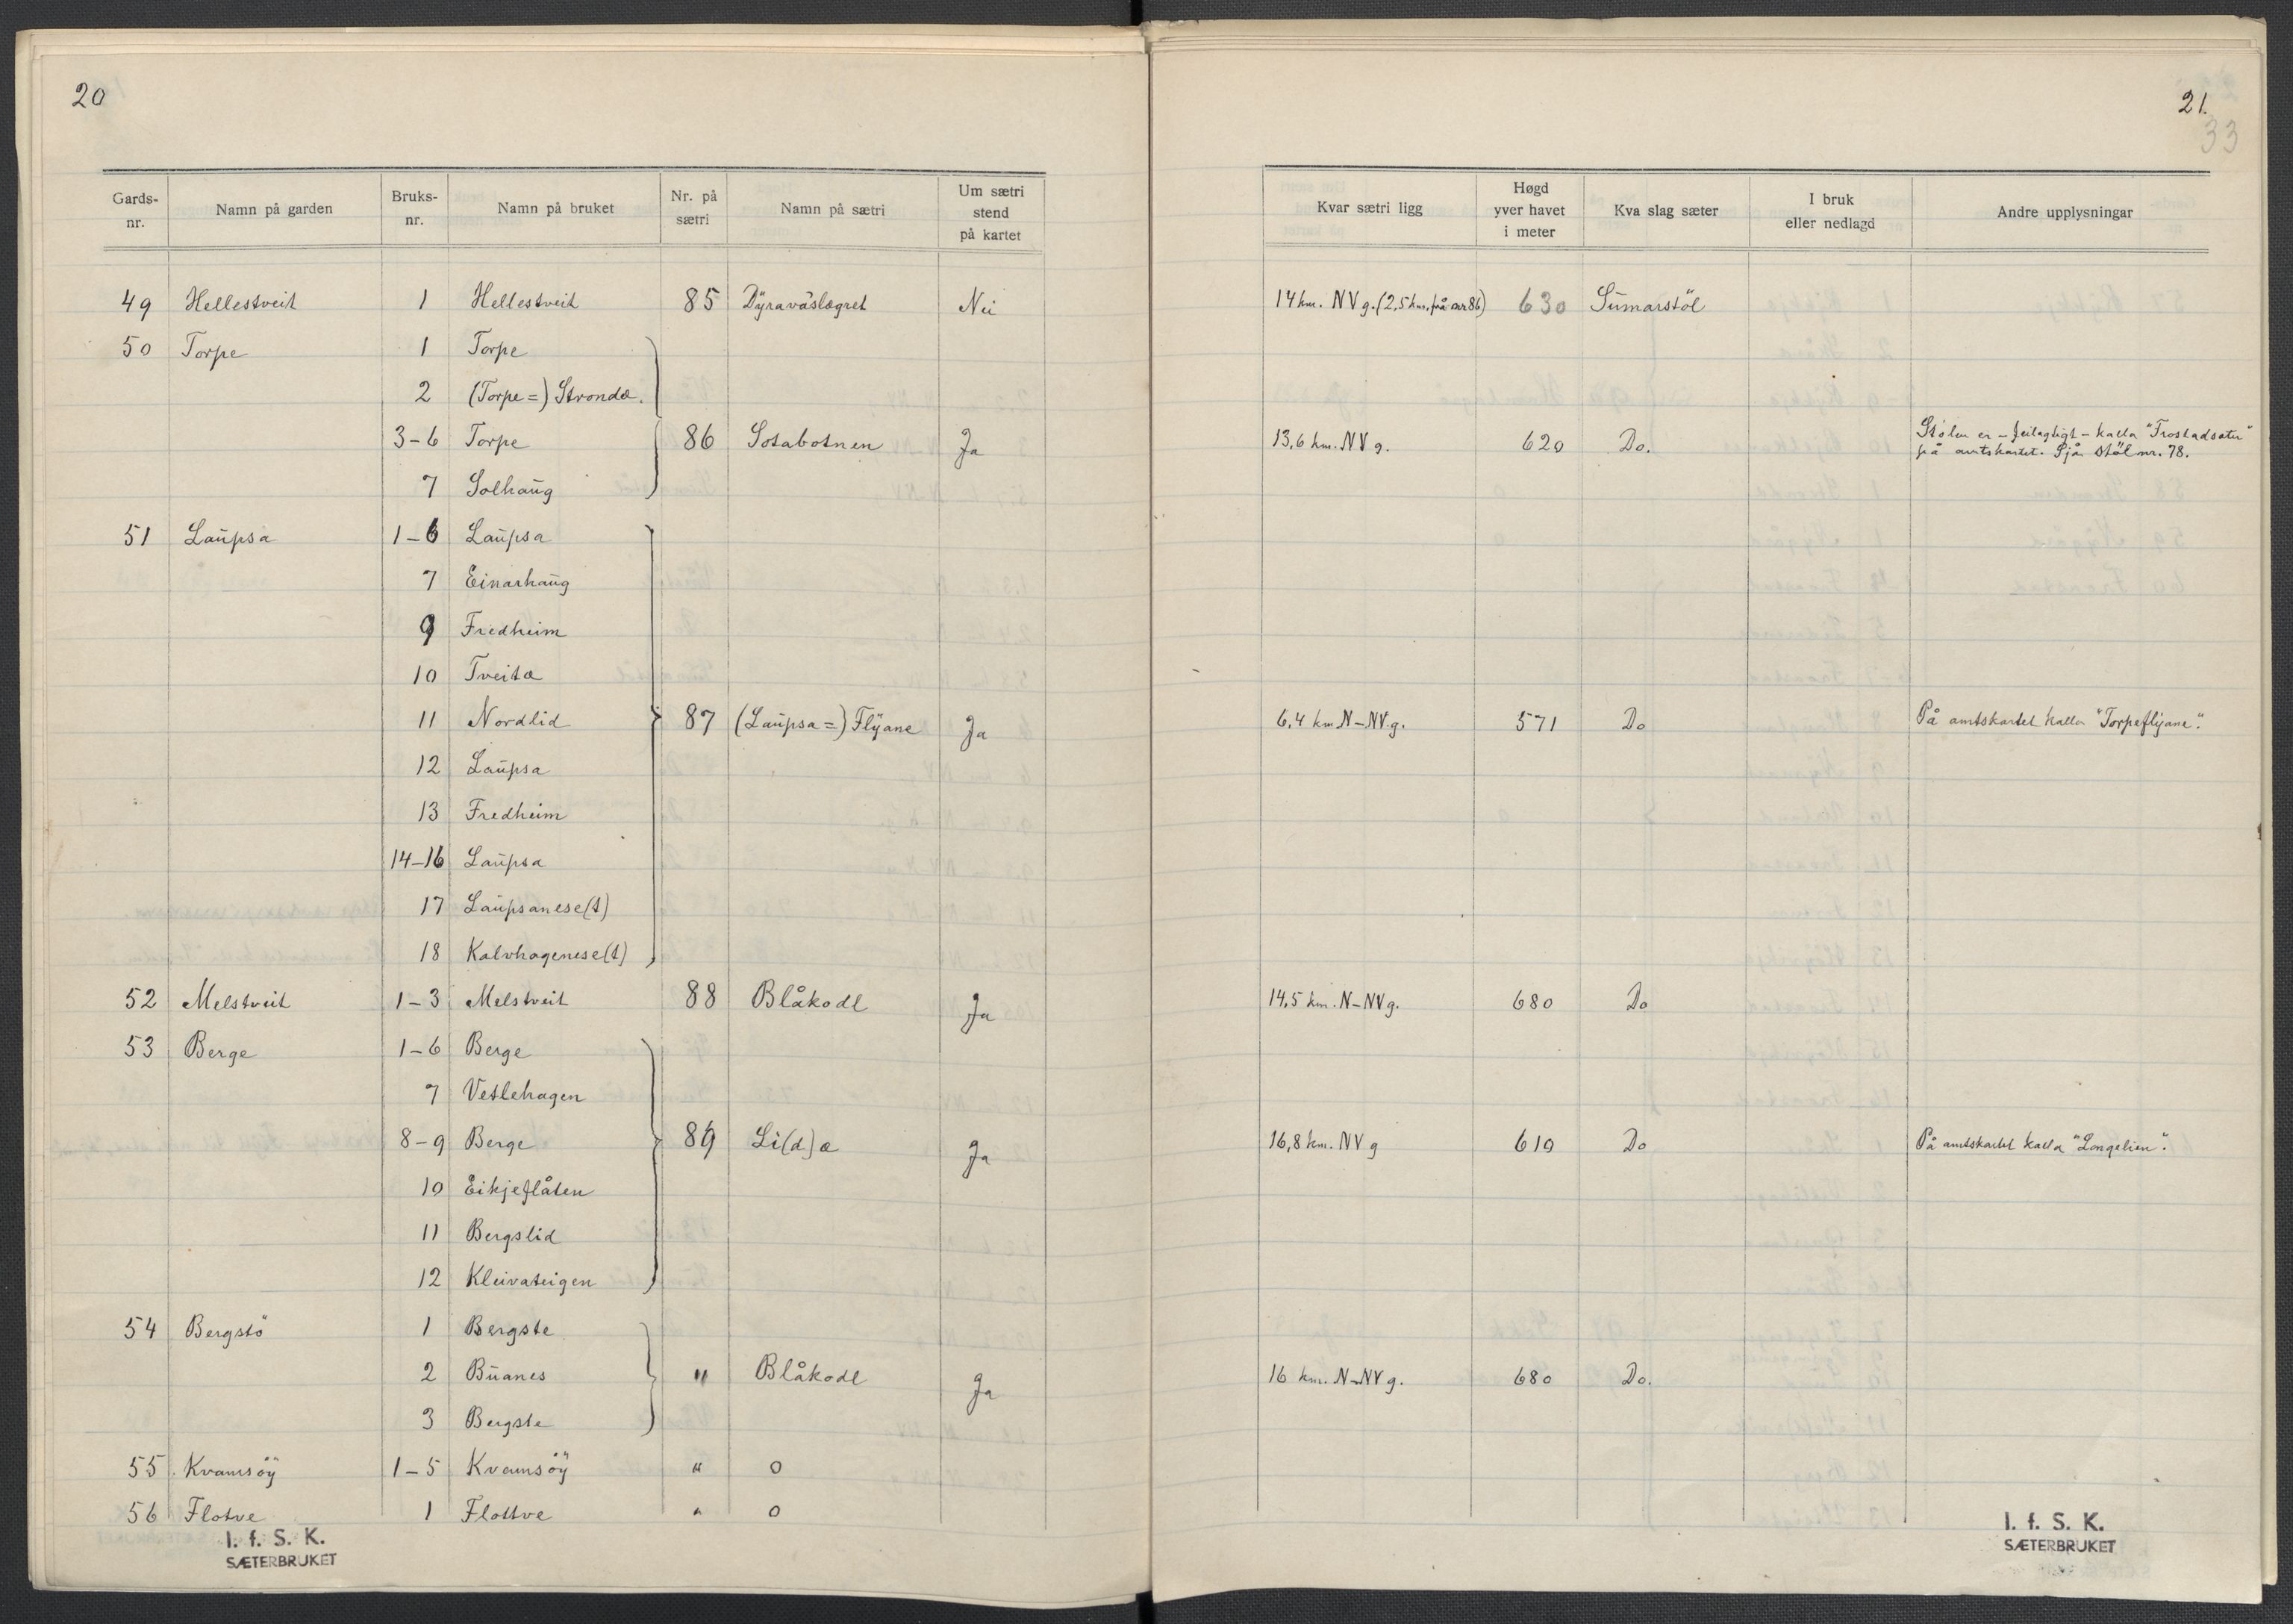 20
Gards-nr. | Namn på garden | Bruks-nr. | Namn på bruket | Nr. på sætri | Namn på sætri | Um sætri stend på kartet
49 Hellestveit 1 Hellestveit 85 Dyravåslægret Nei
50 Torpe 1 Torpe
2 (Torpe=) Stronda.
3-6 Torpe 86 Sotabotnen Ja
7 Solhaug
51 Laupsa 1-6 Laupsa
7 Einarhaug
9 Fredheim
10 Tveita
11 Nordlid 87 (Laupsa=) Flyane Ja
12 Laupsa
13 Fredheim
14-16 Laupsa
17 Laupsanese(t)
18 Kalvhagenese(t)
52 Melstveit 1-3 Melstveit 88 Blåkoll Ja
53 Berge 1-6 Berge
7 Vetlehagen
8-9 Berge 89 Li(d)a Ja
10 Eikjeflåten
11 Bergslid
12 Kleivateigen
54 Bergstö 1 Bergste
2 Buanes " Blåkoll Ja
3 Bergste
55 Kvamsöy 1-5 Kvamsöy " 0
56 Flotve 1 Flottve " 0
I. f. S. K.
SÆTERBRUKET
21.
33
Kvar sætri ligg | Høgd yver havet i meter | Kva slag sæter | I bruk eller nedlagd | Andre upplysningar
14 km. NV g. (2,5 km. frå nr 86) 630 Sumarstöl
13,6 km. NV g. 620 Do. Stölen er - feilagtigt - kalla "Trostadseter"
på amtskartet. Sjå stöl nr. 78.
6,4 km N-NV g. 571 Do På amtskartet kalla "Torpeflyane".
14,5 km. N-NV g. 680 Do
16,8 km. NV g 610 Do På amtskartet kalla "Longelien".
16 km. N-NV g. 680 Do.
I. f. S. K.
SÆTERBRUKET